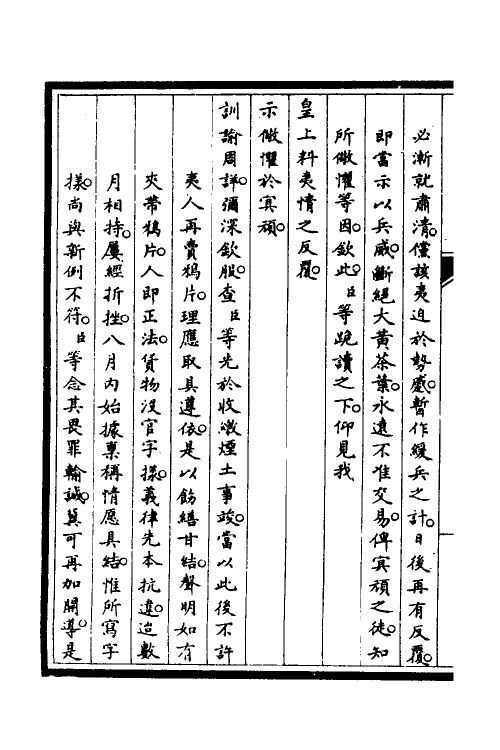 必漸就肅清。儻該夷迫於勢蹙。暫作緩兵之計。日後再有反覆。
即當示以兵威。斷絕大黃茶葉。永遠不准交易。俾冥頑之徒。知
所儆懼等因。欽此。臣等跪讀之下。仰見我
皇上料夷情之反覆。
示儆懼於冥頑。
訓諭周詳。彌深欽服。查臣等先於收繳煙土事竣。當以此後不許
夷人再賣鴉片。理應取具遵依。是以飭繕甘結。聲明如有
夾帶鴉片。人即正法。貨物沒官字樣。義律先本抗違。迨數
月相持。屢經折挫。八月內始據稟稱情愿具結。惟所寫字
樣。尚與新例不符。臣等念其畏罪輸誠。冀可再加開導。是